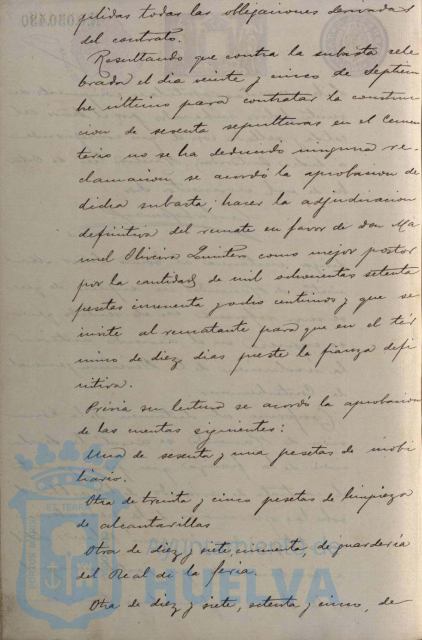 plidas todas las obligaciones derivadas
del contrato.
Resultando que contra la subasta cele-
brada el dia veinte y cinco de Septiem-
bre último para contratar la construc-
cion de sesenta sepulturas en el Cemen-
terio no se ha deducido ninguna re-
clamacion se acordó la aprobacion de
dicha subasta; hacer la adjudicacion
definitiva del remate en favor de don Ma-
nuel Oliveira Quintero como mejor postor
por la cantidad de mil ochocientas setenta
pesetas cincuenta y ocho céntimos y que se
invite al rematante para que en el tér-
mino de diez dias preste la fianza defi-
nitiva.
Prévia su lectura se acordó la aprobacion
de las cuentas siguientes:
Una de sesenta y una pesetas de mobi-
liario.
Otra de treinta y cinco pesetas de limpieza
de alcantarillas
Otra de diez y siete, cincuenta, de guarderia
del Real de la feria.
Otra de diez y siete, setenta y cinco, de
Ayuntamiento de
HUELVA